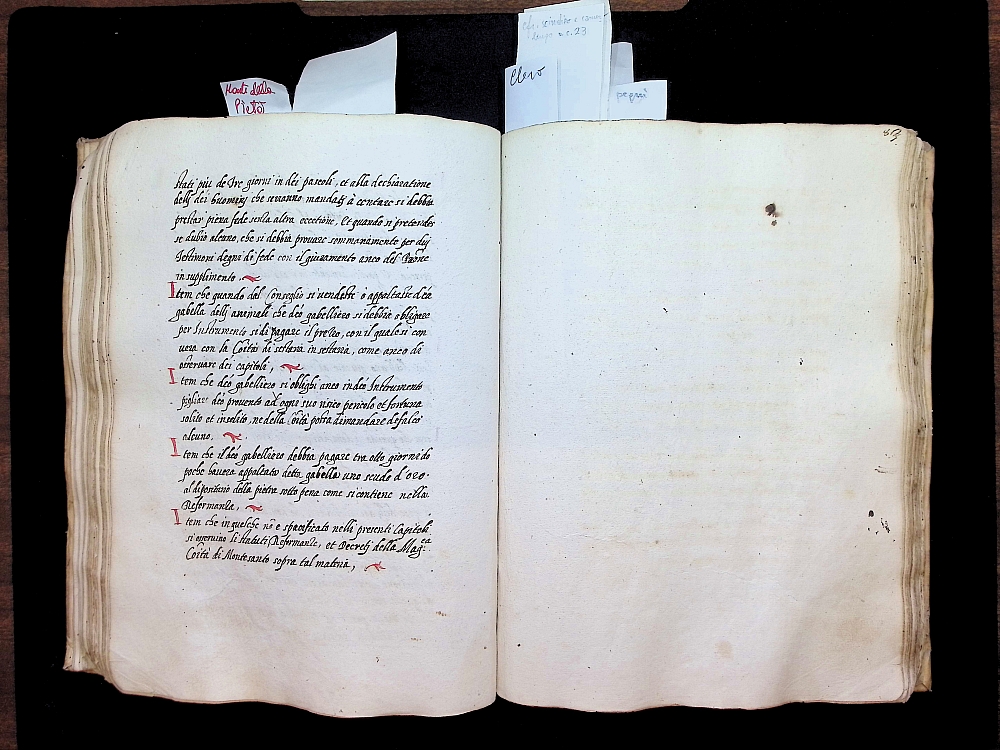 Monti della
Pietà
Clero
pegni
89
stati più de tre giorni in dei pascoli, et alla dechiaratione
delli dei huomini che seranno mandati à contare si debbia
prestar piena fede senza altra eccettione, Et quando si pretendes
se dubio alcuno, che si debbia provare sommariamente per dui
Testimoni degni di fede con il giuramento anco del Prone
in supplimento.
Item che quando dal Conseglio si vendesse o appaltasse dea
gabella delli animali che deo gabelliero si debbia obligare
per Instrumento si di pagare il prezzo, con il quale si con
verà con la Coità di sestaria in sestaria, come anco di
osservare dei capitoli,
Item che deo gabelliero si oblighi anco in deo Instrumento
pigliare deo provento ad ogni suo risico pericolo et fortuna
solito et insolito, ne della Coità possa dimandare defalco
alcuno.
Item che il deo gabelliero debbia pagare tra otto giorni do
poche haverà appaltato detta gabella uno scudo d'oro.
al dipositario della pietra sotto pena come si contiene nella
Reformanza,
Item che in quelche nō e spacificato nelli presenti Capitoli
si osservino li statuti Reformanze, et Decreti della Mag:ca
Coità di Montesanto sopra tal materia,